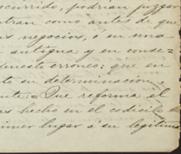 ocurrido, podrian juzgar
entran como antes de que
as negocios, ó en una
antigua y en conse-
damente erroneo; que en
to en determinacion
nte. Que reforma el
as hecho en el codicilo
rimer lugar á su legitima